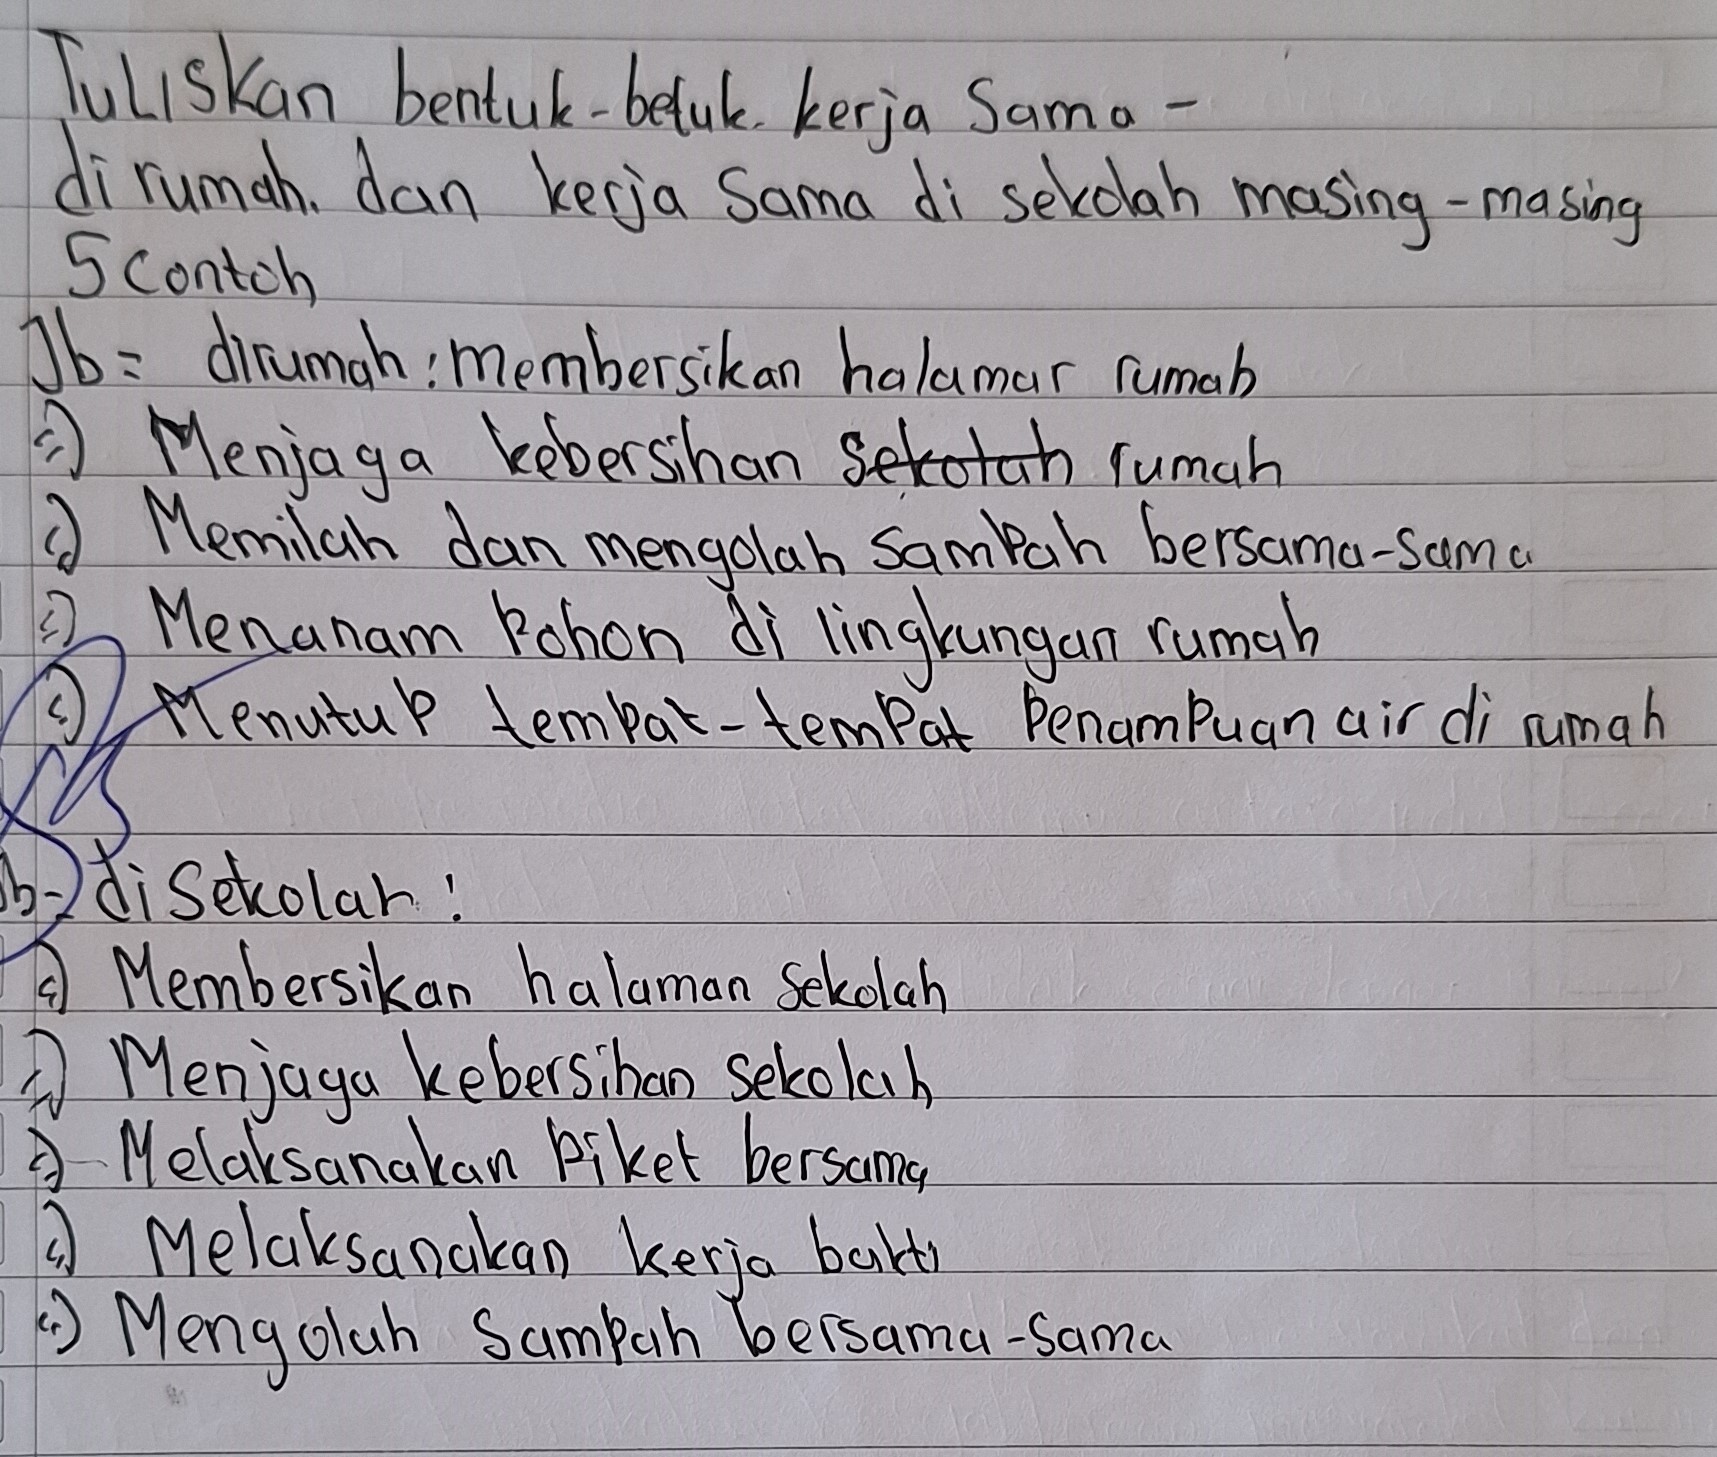 Tuliskan bentuk-betuk kerja sama -
di rumah. dan kerja sama di sekolah masing-masing
5 contoh
Jb = dirumah : membersikan halamar rumah
=) Menjaga kebersihan sekolah rumah
=) Memilah dan mengolah sampah bersama-sama
=) Menanam pohon di lingkungan rumah
=) Menutup tempat-tempat penampuan air di rumah
Jb = di sekolah :
=) Membersikan halaman sekolah
=) Menjaga kebersihan sekolah
=) Melaksanakan piket bersama
=) Melaksanakan kerja bakti
=) Mengolah sampah bersama-sama